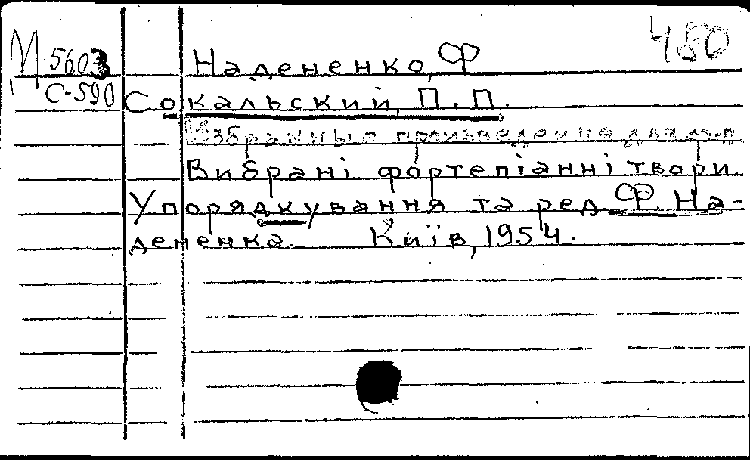 М 5603
С-590
480
Надененко, Ф
Сокальский, П. П.
Избранные произведения для ф.п.
Вибрані фортепіанні твори.
Упорядкування та ред. Ф. На-
дененка. Київ, 1954.